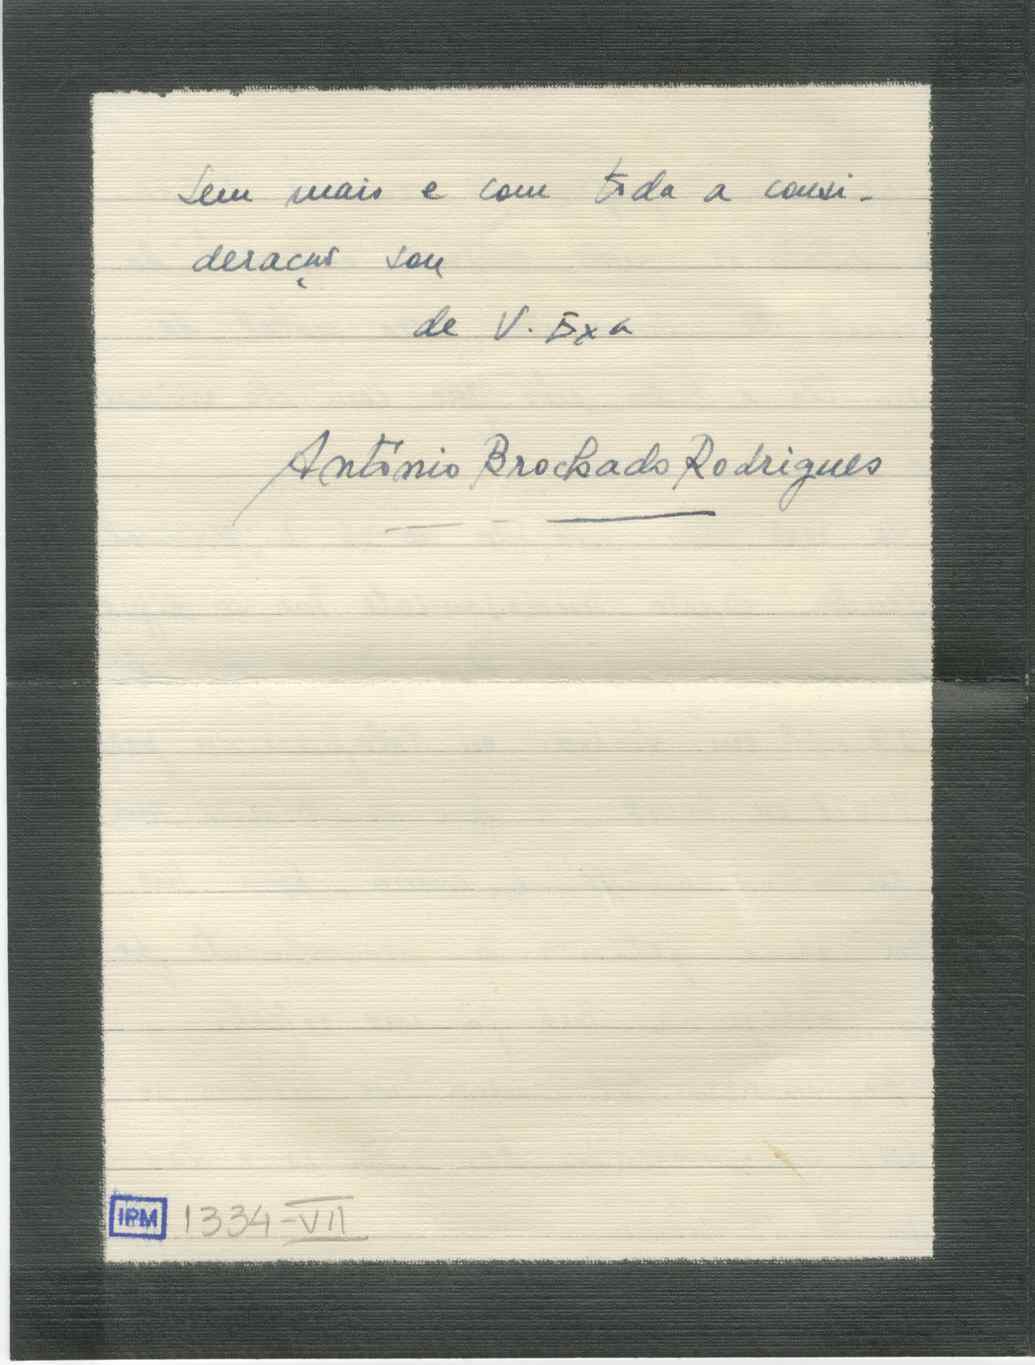 Sem mais e com toda a consi-
deração sou
de V. Exa
António Brochado Rodrigues
IPM 1334-VII